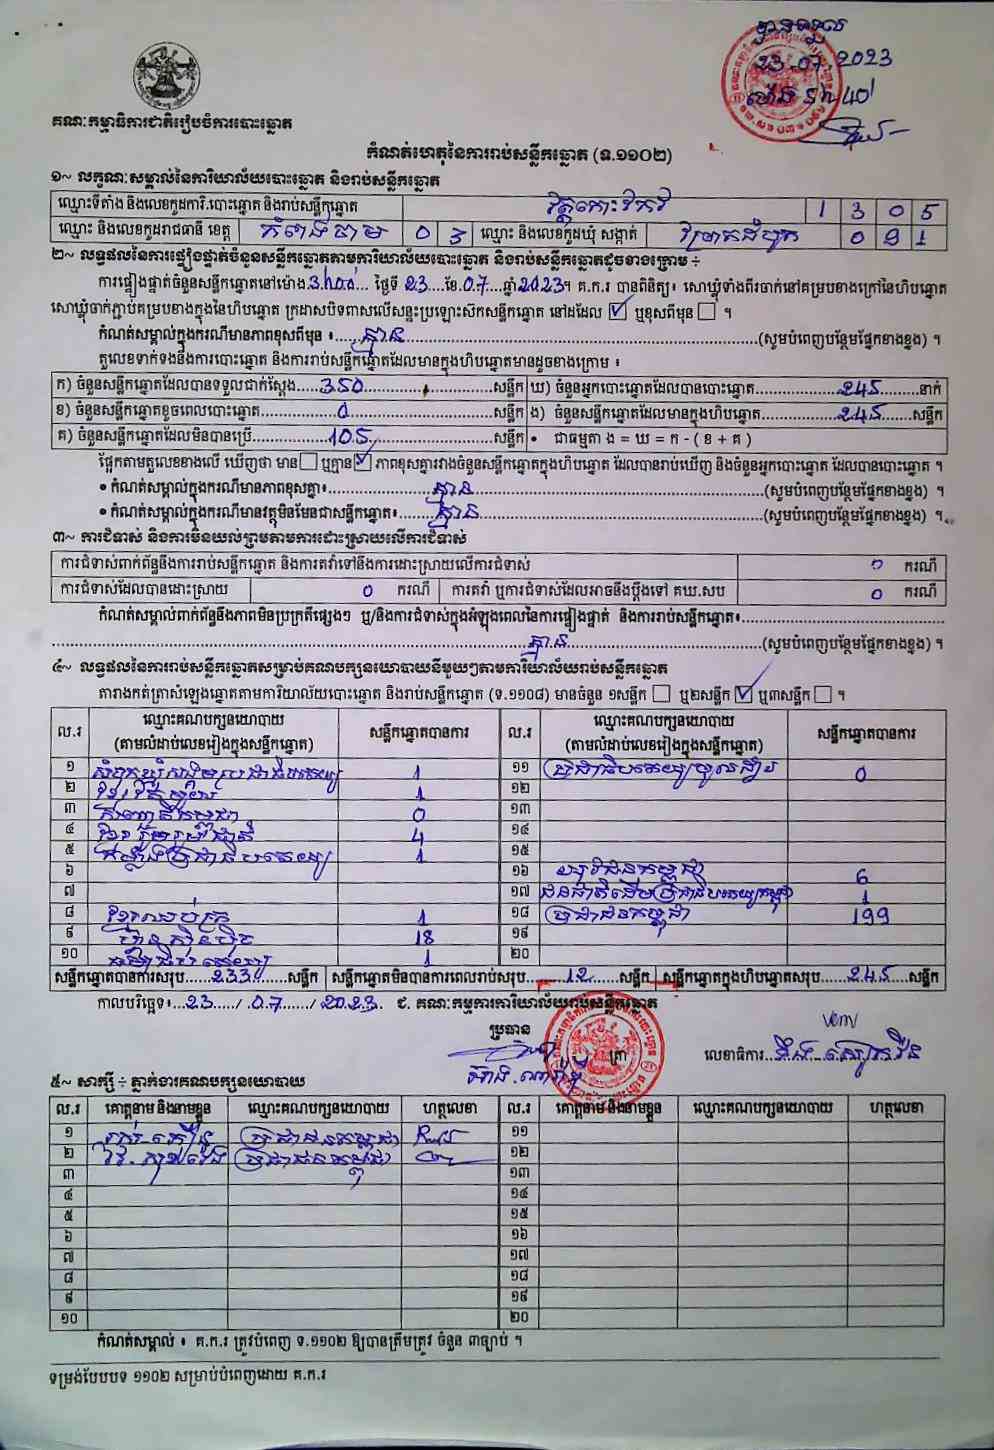 បានទទួល
23.07.2023
គណៈកម្មាធិការជាតិរៀបចំការបោះឆ្នោត
កំណត់ហេតុនៃការរាប់សន្លឹកឆ្នោត (ទ.១១០២)
១~ លក្ខណៈសម្គាល់នៃការិយាល័យបោះឆ្នោត និងរាប់សន្លឹកឆ្នោត
ឈ្មោះទីតាំង និងលេខកូដការិ.បោះឆ្នោត និងរាប់សន្លឹកឆ្នោត 1 3 0 5
ឈ្មោះ និងលេខកូដរាជធានី ខេត្ត កំពង់ចាម 0 3 ឈ្មោះ និងលេខកូដឃុំ សង្កាត់ 0 9 1
២~ លទ្ធផលនៃការផ្ទៀងផ្ទាត់ចំនួនសន្លឹកឆ្នោតតាមការិយាល័យបោះឆ្នោត និងរាប់សន្លឹកឆ្នោតដូចខាងក្រោម ÷
ការផ្ទៀងផ្ទាត់ចំនួនសន្លឹកឆ្នោតនៅម៉ោង 3 ថ្ងៃទី 23 ខែ 07 ឆ្នាំ 2023។ គ.ក.រ បានពិនិត្យ៖ សោឃ្លុំទាំងពីរចាក់នៅគម្របខាងក្រៅនៃហិបឆ្នោត
សោឃ្លុំចាក់ភ្ជាប់គម្របខាងក្នុងនៃហិបឆ្នោត ក្រដាសបិទពាសលើសន្ទះប្រឡោះស៊កសន្លឹកឆ្នោត នៅដដែល ☑ ឬខុសពីមុន ☐ ។
កំណត់សម្គាល់ក្នុងករណីមានភាពខុសពីមុន ៖ គ្មាន (សូមបំពេញបន្ថែមផ្នែកខាងខ្នង) ។
តួលេខទាក់ទងនឹងការបោះឆ្នោត និងការរាប់សន្លឹកឆ្នោតដែលមានក្នុងហិបឆ្នោតមានដូចខាងក្រោម ៖
ក) ចំនួនសន្លឹកឆ្នោតដែលបានទទួលជាក់ស្តែង 350 សន្លឹក ឃ) ចំនួនអ្នកបោះឆ្នោតដែលបានបោះឆ្នោត 245 នាក់
ខ) ចំនួនសន្លឹកឆ្នោតខូចពេលបោះឆ្នោត 0 សន្លឹក ង) ចំនួនសន្លឹកឆ្នោតដែលមានក្នុងហិបឆ្នោត 245 សន្លឹក
គ) ចំនួនសន្លឹកឆ្នោតដែលមិនបានប្រើ 105 សន្លឹក • ជាធម្មតា ង = ឃ = ក - ( ខ + គ )
ផ្អែកតាមតួលេខខាងលើ ឃើញថា មាន ☐ ឬគ្មាន ☑ ភាពខុសគ្នារវាងចំនួនសន្លឹកឆ្នោតក្នុងហិបឆ្នោត ដែលបានរាប់ឃើញ និងចំនួនអ្នកបោះឆ្នោត ដែលបានបោះឆ្នោត ។
• កំណត់សម្គាល់ក្នុងករណីមានភាពខុសគ្នា៖ គ្មាន (សូមបំពេញបន្ថែមផ្នែកខាងខ្នង) ។
• កំណត់សម្គាល់ក្នុងករណីមានវត្ថុមិនមែនជាសន្លឹកឆ្នោត៖ គ្មាន (សូមបំពេញបន្ថែមផ្នែកខាងខ្នង) ។
៣~ ការជំទាស់ និងការមិនយល់ព្រមតាមការដោះស្រាយលើការជំទាស់
ការជំទាស់ពាក់ព័ន្ធនឹងការរាប់សន្លឹកឆ្នោត និងការតវ៉ាទៅនឹងការដោះស្រាយលើការជំទាស់ 0 ករណី
ការជំទាស់ដែលបានដោះស្រាយ 0 ករណី ការតវ៉ា ឬការជំទាស់ដែលអាចនឹងប្តឹងទៅ គឃ.សប 0 ករណី
កំណត់សម្គាល់ពាក់ព័ន្ធនឹងភាពមិនប្រក្រតីផ្សេងៗ ឬ/និងការជំទាស់ក្នុងអំឡុងពេលនៃការផ្ទៀងផ្ទាត់ និងការរាប់សន្លឹកឆ្នោត៖
គ្មាន (សូមបំពេញបន្ថែមផ្នែកខាងខ្នង) ។
៤~ លទ្ធផលនៃការរាប់សន្លឹកឆ្នោតសម្រាប់គណបក្សនយោបាយនីមួយៗតាមការិយាល័យរាប់សន្លឹកឆ្នោត
តារាងកត់ត្រាសំឡេងឆ្នោតតាមការិយាល័យបោះឆ្នោត និងរាប់សន្លឹកឆ្នោត (ទ.១១០៨) មានចំនួន ១សន្លឹក ☐ ឬ២សន្លឹក ☑ ឬ៣សន្លឹក ☐ ។
ល.រ ឈ្មោះគណបក្សនយោបាយ (តាមលំដាប់លេខរៀងក្នុងសន្លឹកឆ្នោត) សន្លឹកឆ្នោតបានការ ល.រ ឈ្មោះគណបក្សនយោបាយ (តាមលំដាប់លេខរៀងក្នុងសន្លឹកឆ្នោត) សន្លឹកឆ្នោតបានការ
១ 1 ១១ 0
២ 1 ១២
៣ 0 ១៣
៤ 4 ១៤
៥ 1 ១៥
៦ ១៦ 6
៧ ១៧ 1
៨ 1 ១៨ ប្រជាជនកម្ពុជា 199
៩ 18 ១៩
១០ 1 ២០
សន្លឹកឆ្នោតបានការសរុប 233 សន្លឹក សន្លឹកឆ្នោតមិនបានការពេលរាប់សរុប 12 សន្លឹក សន្លឹកឆ្នោតក្នុងហិបឆ្នោតសរុប 245 សន្លឹក
កាលបរិច្ឆេទ៖ 23 / 07 / 2023 ជ. គណៈកម្មការការិយាល័យរាប់សន្លឹកឆ្នោត
ប្រធាន
ត្រា លេខាធិការ
៥~ សាក្សី ÷ ភ្នាក់ងារគណបក្សនយោបាយ
ល.រ គោត្តនាម និងនាមខ្លួន ឈ្មោះគណបក្សនយោបាយ ហត្ថលេខា ល.រ គោត្តនាម និងនាមខ្លួន ឈ្មោះគណបក្សនយោបាយ ហត្ថលេខា
១ ប្រជាជនកម្ពុជា ១១
២ ប្រជាជនកម្ពុជា ១២
៣ ១៣
៤ ១៤
៥ ១៥
៦ ១៦
៧ ១៧
៨ ១៨
៩ ១៩
១០ ២០
កំណត់សម្គាល់ ៖ គ.ក.រ ត្រូវបំពេញ ទ.១១០២ ឱ្យបានត្រឹមត្រូវ ចំនួន ៣ច្បាប់ ។
ទម្រង់បែបបទ ១១០២ សម្រាប់បំពេញដោយ គ.ក.រ